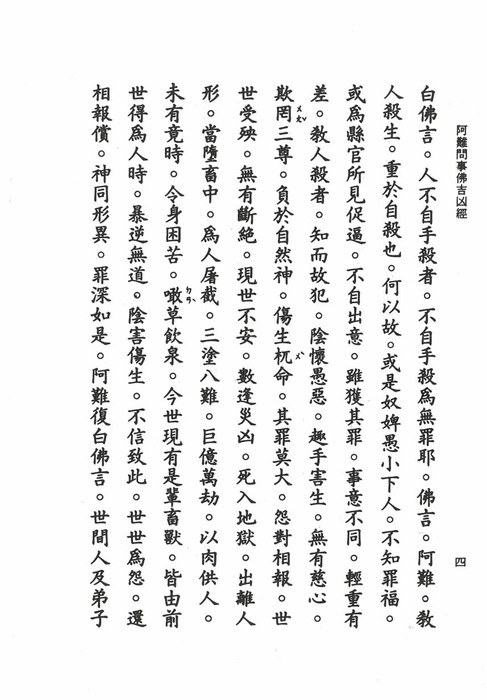 阿難問事佛吉凶經
白佛言。人不自手殺者。不自手殺爲無罪耶。佛言。阿難。教
人殺生。重於自殺也。何以故。或是奴婢愚小下人。不知罪福。
或爲縣官所見促逼。不自出意。雖獲其罪。事意不同。輕重有
差。教人殺者。知而故犯。陰懷愚惡。趣手害生。無有慈心。
欺罔三尊。負於自然神。傷生杌命。其罪莫大。怨對相報。世
ㄨㄤˇ
ㄨˋ
世受殃。無有斷絕。現世不安。數逢災凶。死入地獄。出離人
形。當墮畜中。爲人屠截。三塗八難。巨億萬劫。以肉供人。
未有竟時。令身困苦。噉草飲泉。今世現有是輩畜獸。皆由前
ㄉㄢˋ
世得爲人時。暴逆無道。陰害傷生。不信致此。世世爲怨。還
相報償。神同形異。罪深如是。阿難復白佛言。世間人及弟子
四